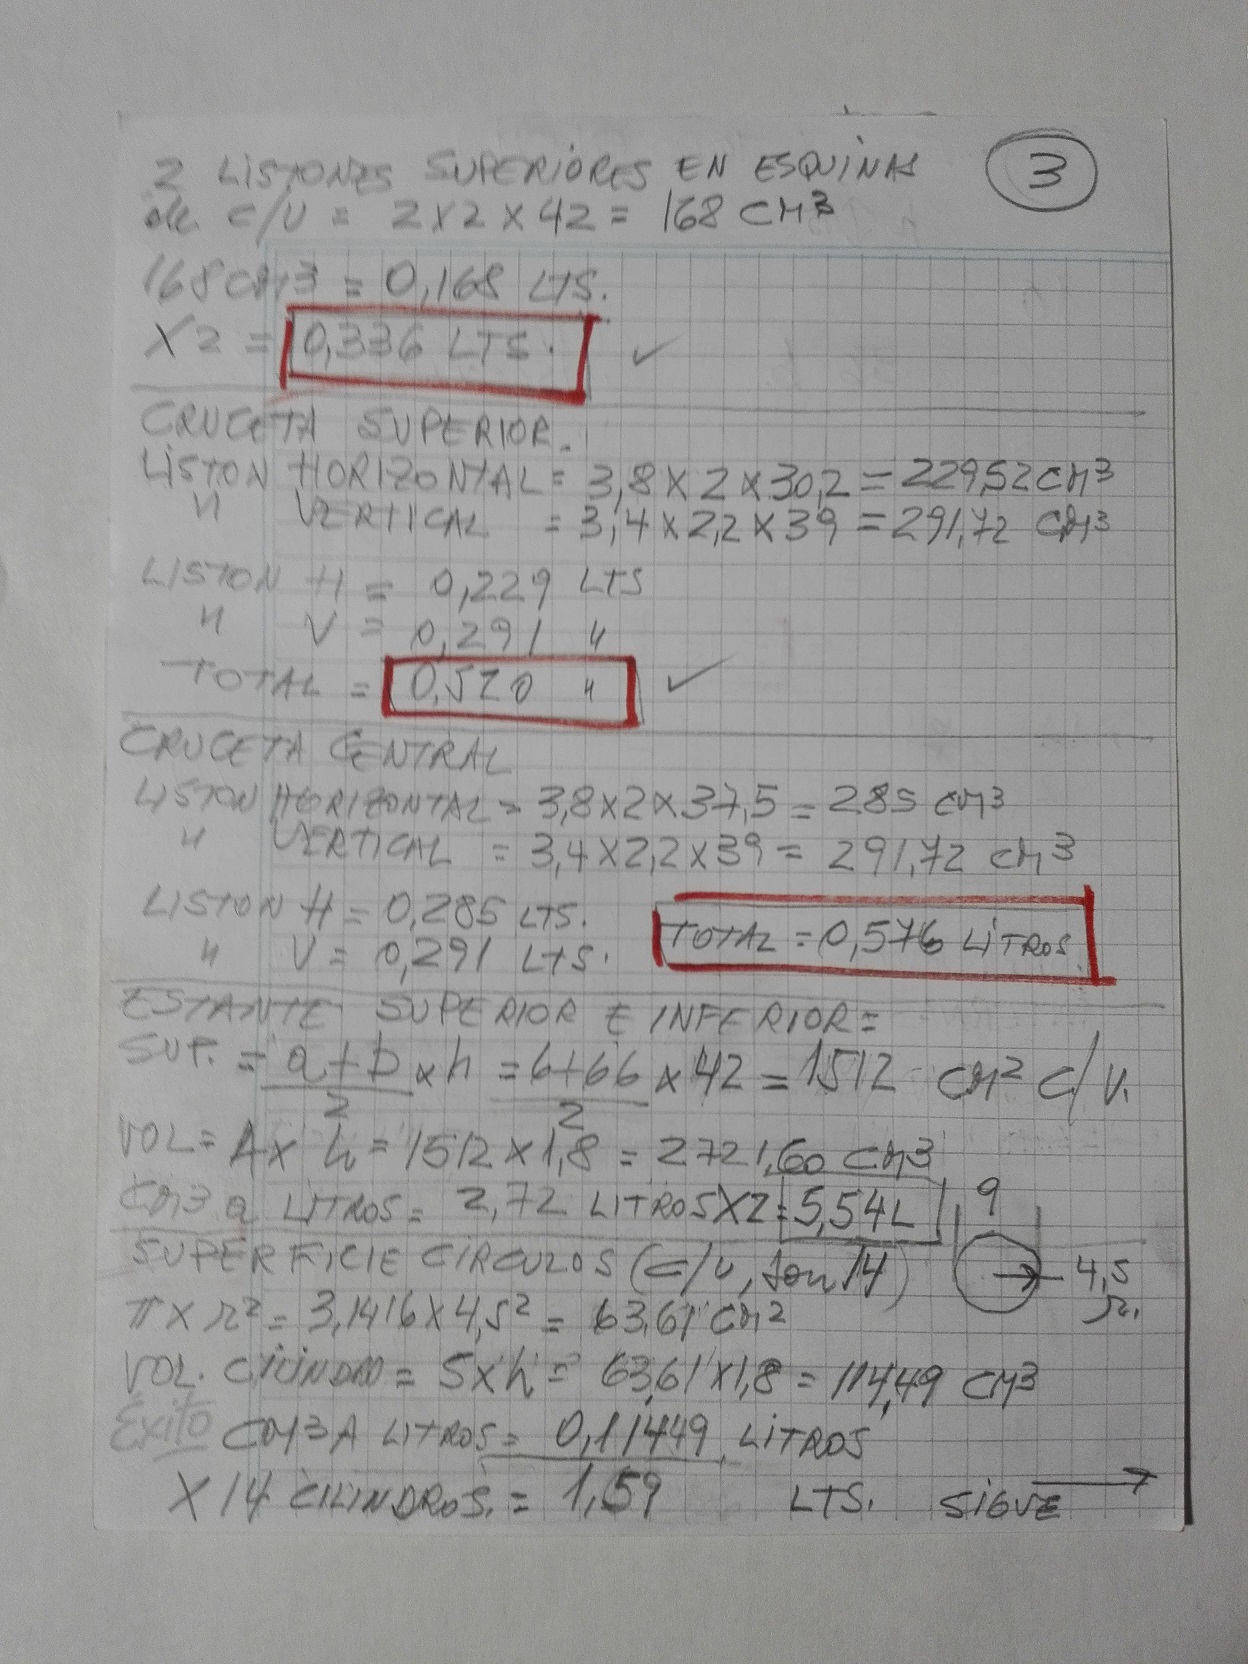 3
2 LISTONES SUPERIORES EN ESQUINAS
de c/u = 2 x 2 x 42 = 168 cm3
168 cm3 = 0,168 LTS.
X 2 = 0,336 LTS. ✓
CRUCETA SUPERIOR.
LISTON HORIZONTAL = 3,8 x 2 x 30,2 = 229,52 cm3
" VERTICAL = 3,4 x 2,2 x 39 = 291,72 cm3
LISTON H = 0,229 LTS
" V = 0,291 "
TOTAL = 0,520 " ✓
CRUCETA CENTRAL
LISTON HORIZONTAL = 3,8 x 2 x 37,5 = 285 cm3
" VERTICAL = 3,4 x 2,2 x 39 = 291,72 cm3
LISTON H = 0,285 LTS.
" V = 0,291 LTS.
TOTAL = 0,576 LITROS.
ESTANTE SUPERIOR E INFERIOR =
SUP. = a+b/2 x h = 6+66/2 x 42 = 1512 cm2 c/u.
VOL = A x h = 1512 x 1,8 = 2721,60 cm3
cm3 a LITROS = 2,72 LITROS X 2 = 5,54 L
9
SUPERFICIE CIRCULOS (c/u, son 14)
4,5
r.
π x r2 = 3,1416 x 4,5² = 63,61 cm2
VOL. CILINDRO = S x h = 63,61 x 1,8 = 114,49 cm3
Éxito cm3 A LITROS = 0,11449 LITROS
X 14 CILINDROS. = 1,59 LTS. SIGUE →